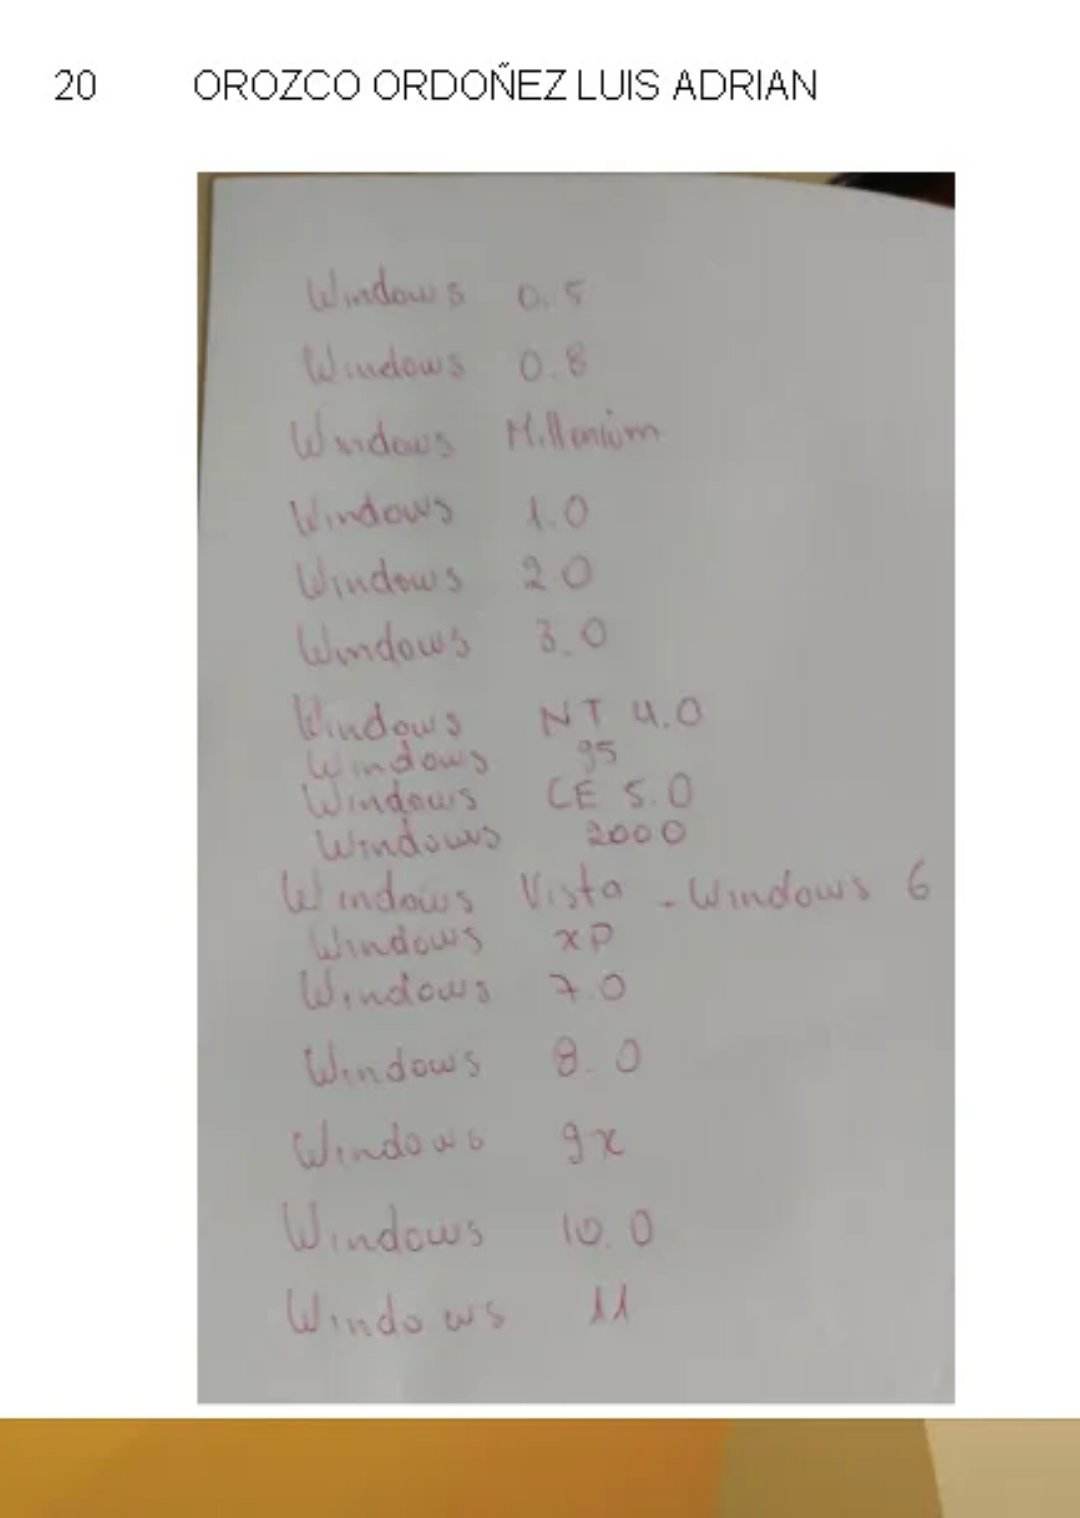 20 OROZCO ORDOÑEZ LUIS ADRIAN
Windows 0.5
Windows 0.8
Windows Millenium
Windows 1.0
Windows 2.0
Windows 3.0
Windows NT 4.0
Windows 95
Windows CE 5.0
Windows 2000
Windows Vista - Windows 6
Windows xP
Windows 7.0
Windows 8.0
Windows 9x
Windows 10.0
Windows 11